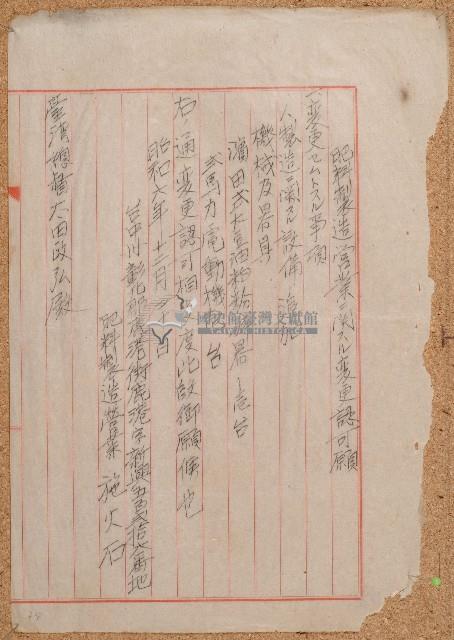 肥料製造営業ニ関スル変更認可願
一、変更セムトスル事項
製造ニ関スル設備ノ追加
機械及器具
濱田式大豆油粕粉器 壱台
弐馬力電動機 台
右ノ通変更認可相度此段御願候也
昭和六年十二月三十日
台中州彰化郡鹿港街鹿港字新興五百弐拾七番地
肥料製造営業 施火石
臺灣總督太田政弘殿
國史館臺灣文獻館
TAIWAN HISTORICA